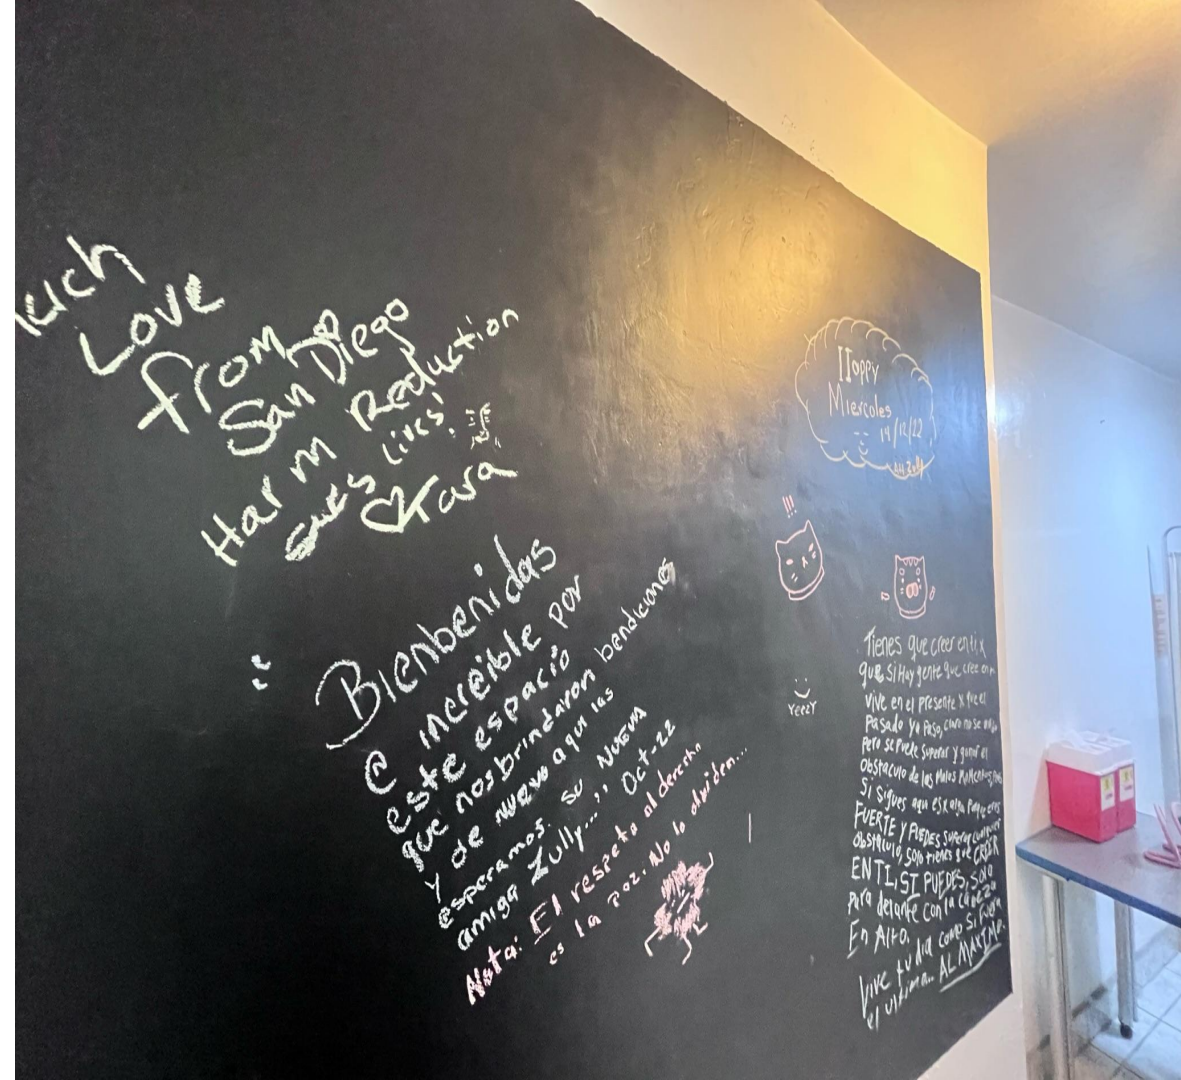 Much
Love
from
San Diego
Harm Reduction
saves lives!
Kara
Bienbenidas
a increible
este espacio por
que nos brindaron bendiciones
y de nuevo aqui las
esperamos. su nueva
amiga Zully... Oct-22
Nota: El respeto al derecho
es la paz. No lo olviden...
Happy
Miercoles
14/12/22
!!!
YEEZY
Tienes que creer en ti, x
que si Hay gente que cree en
vive en el presente x que el
Pasado Ya Paso, claro no se
Pero se puede Superar y ganar al
Obstaculo de los Malos Momentos,
Si sigues aqui es x algo Porque eres
FUERTE Y PUEDES superar cualquier
Obstaculo, solo tienes que CREER
EN TI, SI PUEDES, SOLO
Para delante con la cabeza
En Alto.
Vive tu dia como si fuera
el ultimo.. AL MAXIMO.